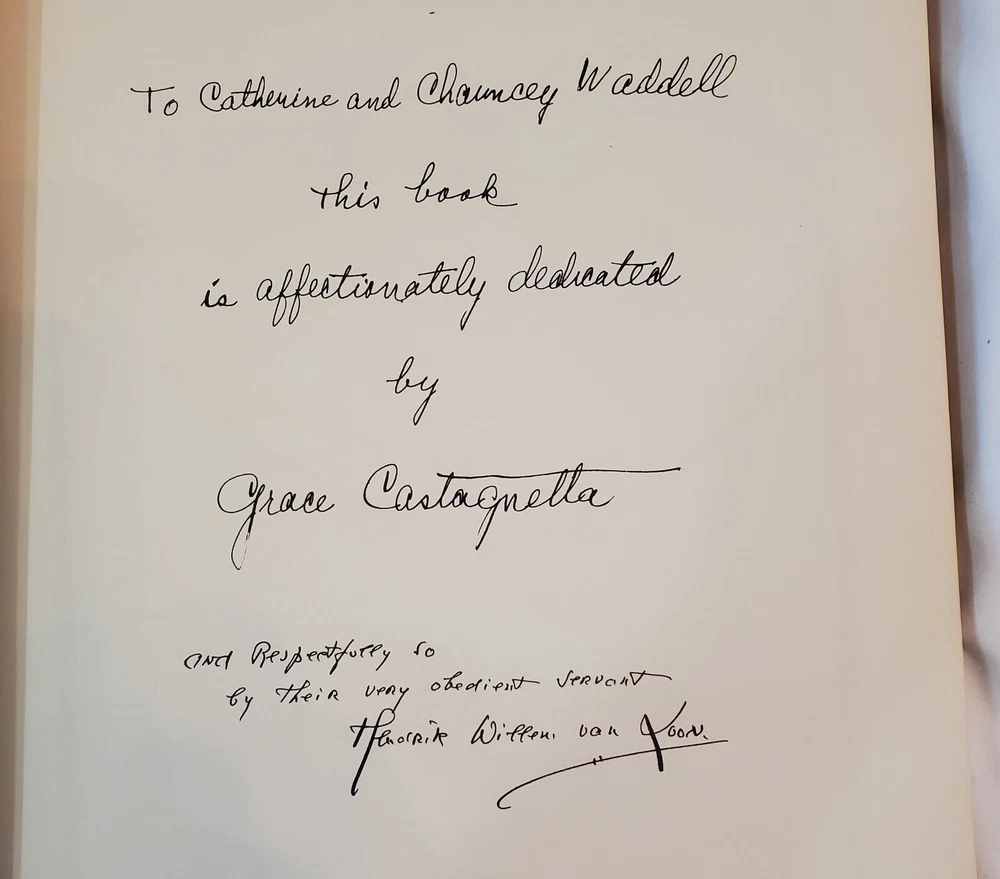 To Catherine and Chauncey Waddell
this book
is affectionately dedicated
by
Grace Castagnetta
and Respectfully so
by their very obedient servant
Hendrik Willem van Loon.